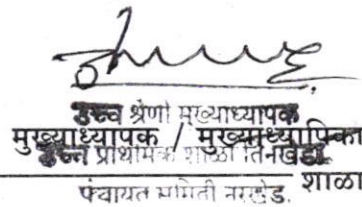 उच्च श्रेणी मुख्याध्यापक
मुख्याध्यापक / मुख्याध्यापिका
उच्च प्राथमिक शाळा तिनखेडा
शाळा
पंचायत समिती नरखेड.